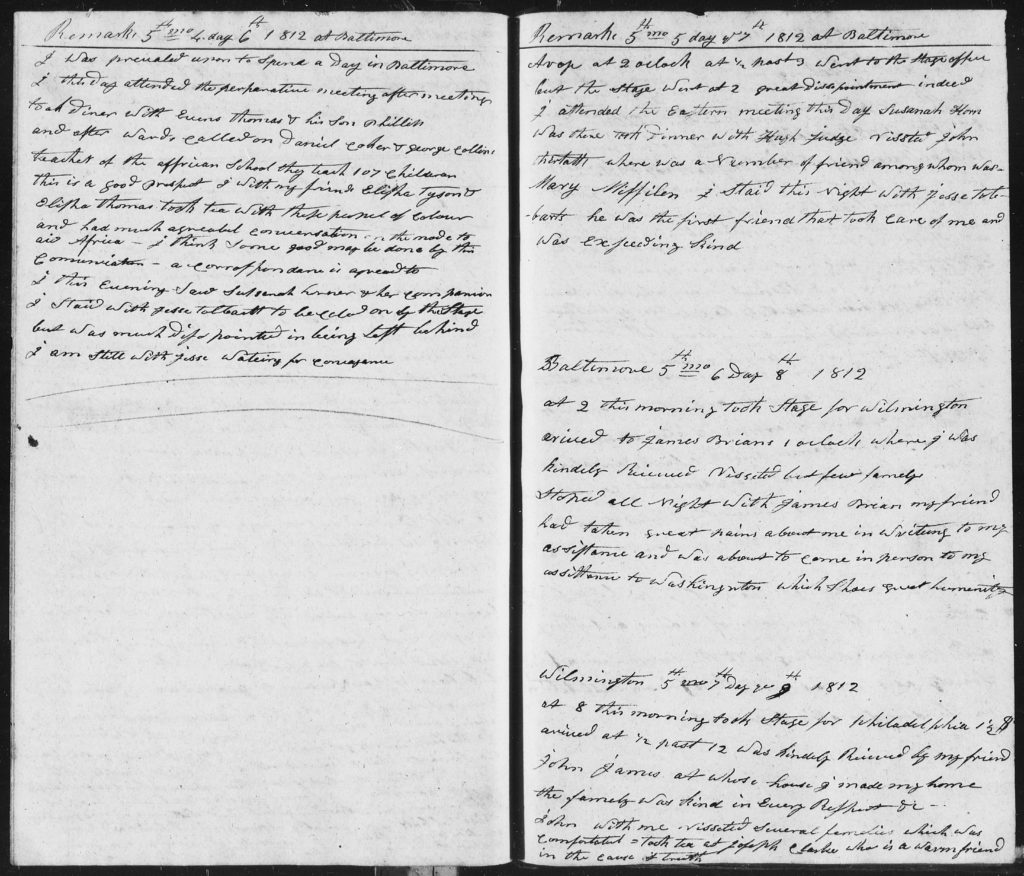 Remarks 5th mo 4 day 6th 1812 at Baltimore
I was prevaled upon to Spend a Day in Baltimore
I this Day attended the perparative meeting after meeting
took Diner with Evens Thomas & his Son Phillip
and after wards Called on Daniel Coker & George Collins
teacher of the affrican School they teach 107 Children
this is a good prospect I with my friend Elisha Tyson &
Elisha Thomas took tea with these peopel of Colour
and had much agreabel Conversation on the mode to
aid Africa – I think Some good may be done by this
– a Corrospondance is agreed to
I this Evening Saw Susanah & her Companion
I Staid with Jesse Talbartt to be Caled on by the Stage
but was much Diss pointed in being left behind
I am Still with Jesse Wateing for Conveyance
Remarks 5th mo 5 day 7th 1812 at Baltimore
Arose at 2 oclock at ½ past 3 went to the Stage office
but the Stage went at 2 great Dissipointment indeed
I attended the Eastern meeting this Day Susanah Horn
was there took Dinner with Hugh Judge Vissted John
where was a Number of friend among whom was
Mary Miffilen I Staid this Night with Jesse tal-
-bartt he was the first friend that took Care of me and
was Exseeding kind
Baltimore 5th mo 6 Day 8th 1812
at 2 this morning took Stage for Wilmington
arived to James Brians 1 oclock where I was
kindely Recieved Vissted but few famely
Stoped all Night with James Brian my friend
had taken great pains about me in writeing to my
assistance and was about to Come in person to my
assistance to Washington which Shoes great humenity
Wilmington 5th mo 7th Day 9th 1812
at 8 this morning took Stage for Philadelphia
arived at ½ past 12 was kindely Recieved by my friend
John James at whose house I made my home
the famely was kind in Every Respect &c –
John with me Vissted Several families which was
Comfortabel – took tea at Joseph Clarke who is a warm friend
in the Cause of truth